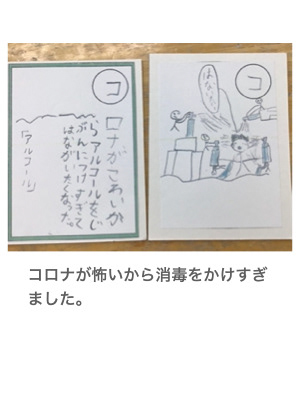 コ
ロナがこわいか
らアルコールをじ
ぶんにつけすぎて
はながいたくなった。
「アルコール」
コ
コロナが怖いから消毒をかけすぎ
ました。